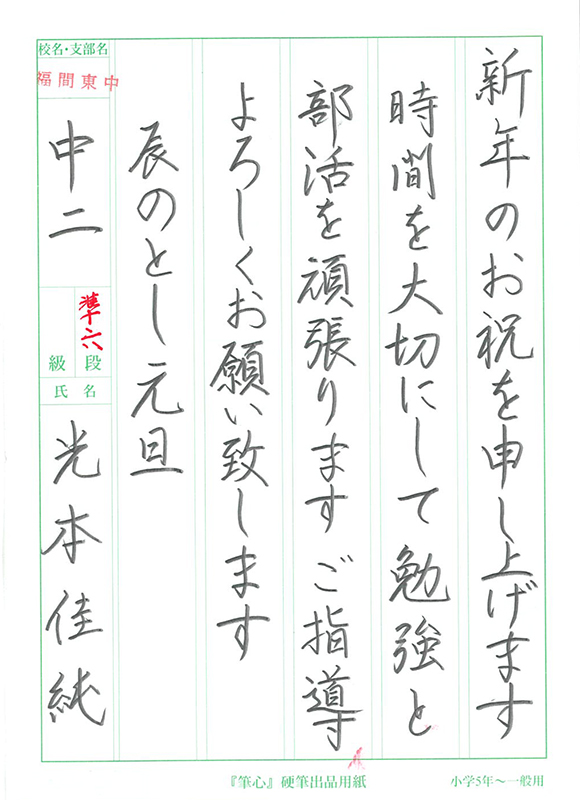 新年のお祝を申し上げます
時間を大切にして勉強と
部活を頑張ります ご指導
よろしくお願い致します
辰のとし元旦
校名・支部名
福間東中
中二
準十六
級 段
氏名
光本佳純
『筆心』硬筆出品用紙
小学5年〜一般用